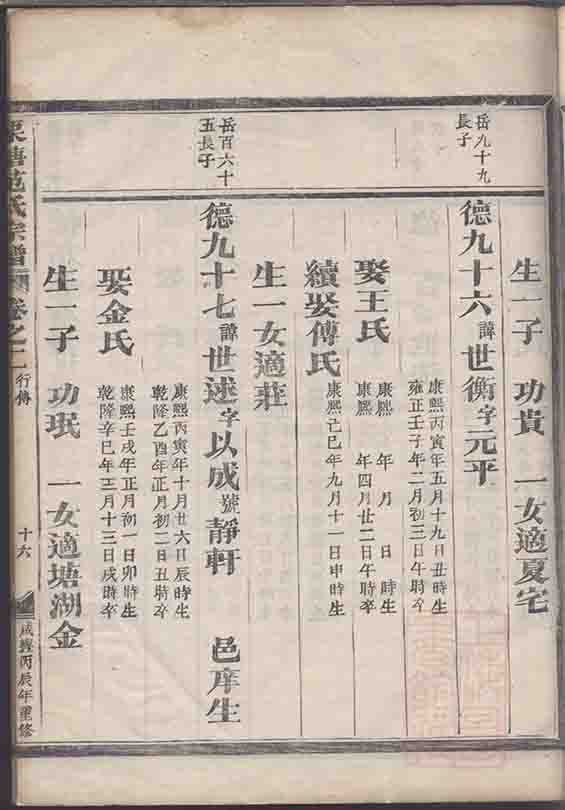 生一子 功貴 一女適夏宅
岳九十九
長子
德九十六諱世衡字元平
康熙丙寅年五月十九日丑時生
雍正壬子年二月初三日午時卒
娶王氏
康熙 年 月 日 時生
康熙 年四月廿二日午時卒
續娶傅氏
康熙己巳年九月十一日申時生
生一女適莊
岳百六十
五長子
德九十七諱世逑字以成號靜軒 邑庠生
康熙丙寅年十月廿六日辰時生
乾隆乙酉年正月初二日丑時卒
娶金氏
康熙壬戌年正月初一日卯時生
乾隆辛巳年三月十三日戌時卒
生一子 功珉 一女適塘湖金
塘范氏宗譜 卷之二 行傳 十六 咸豐丙辰年重修